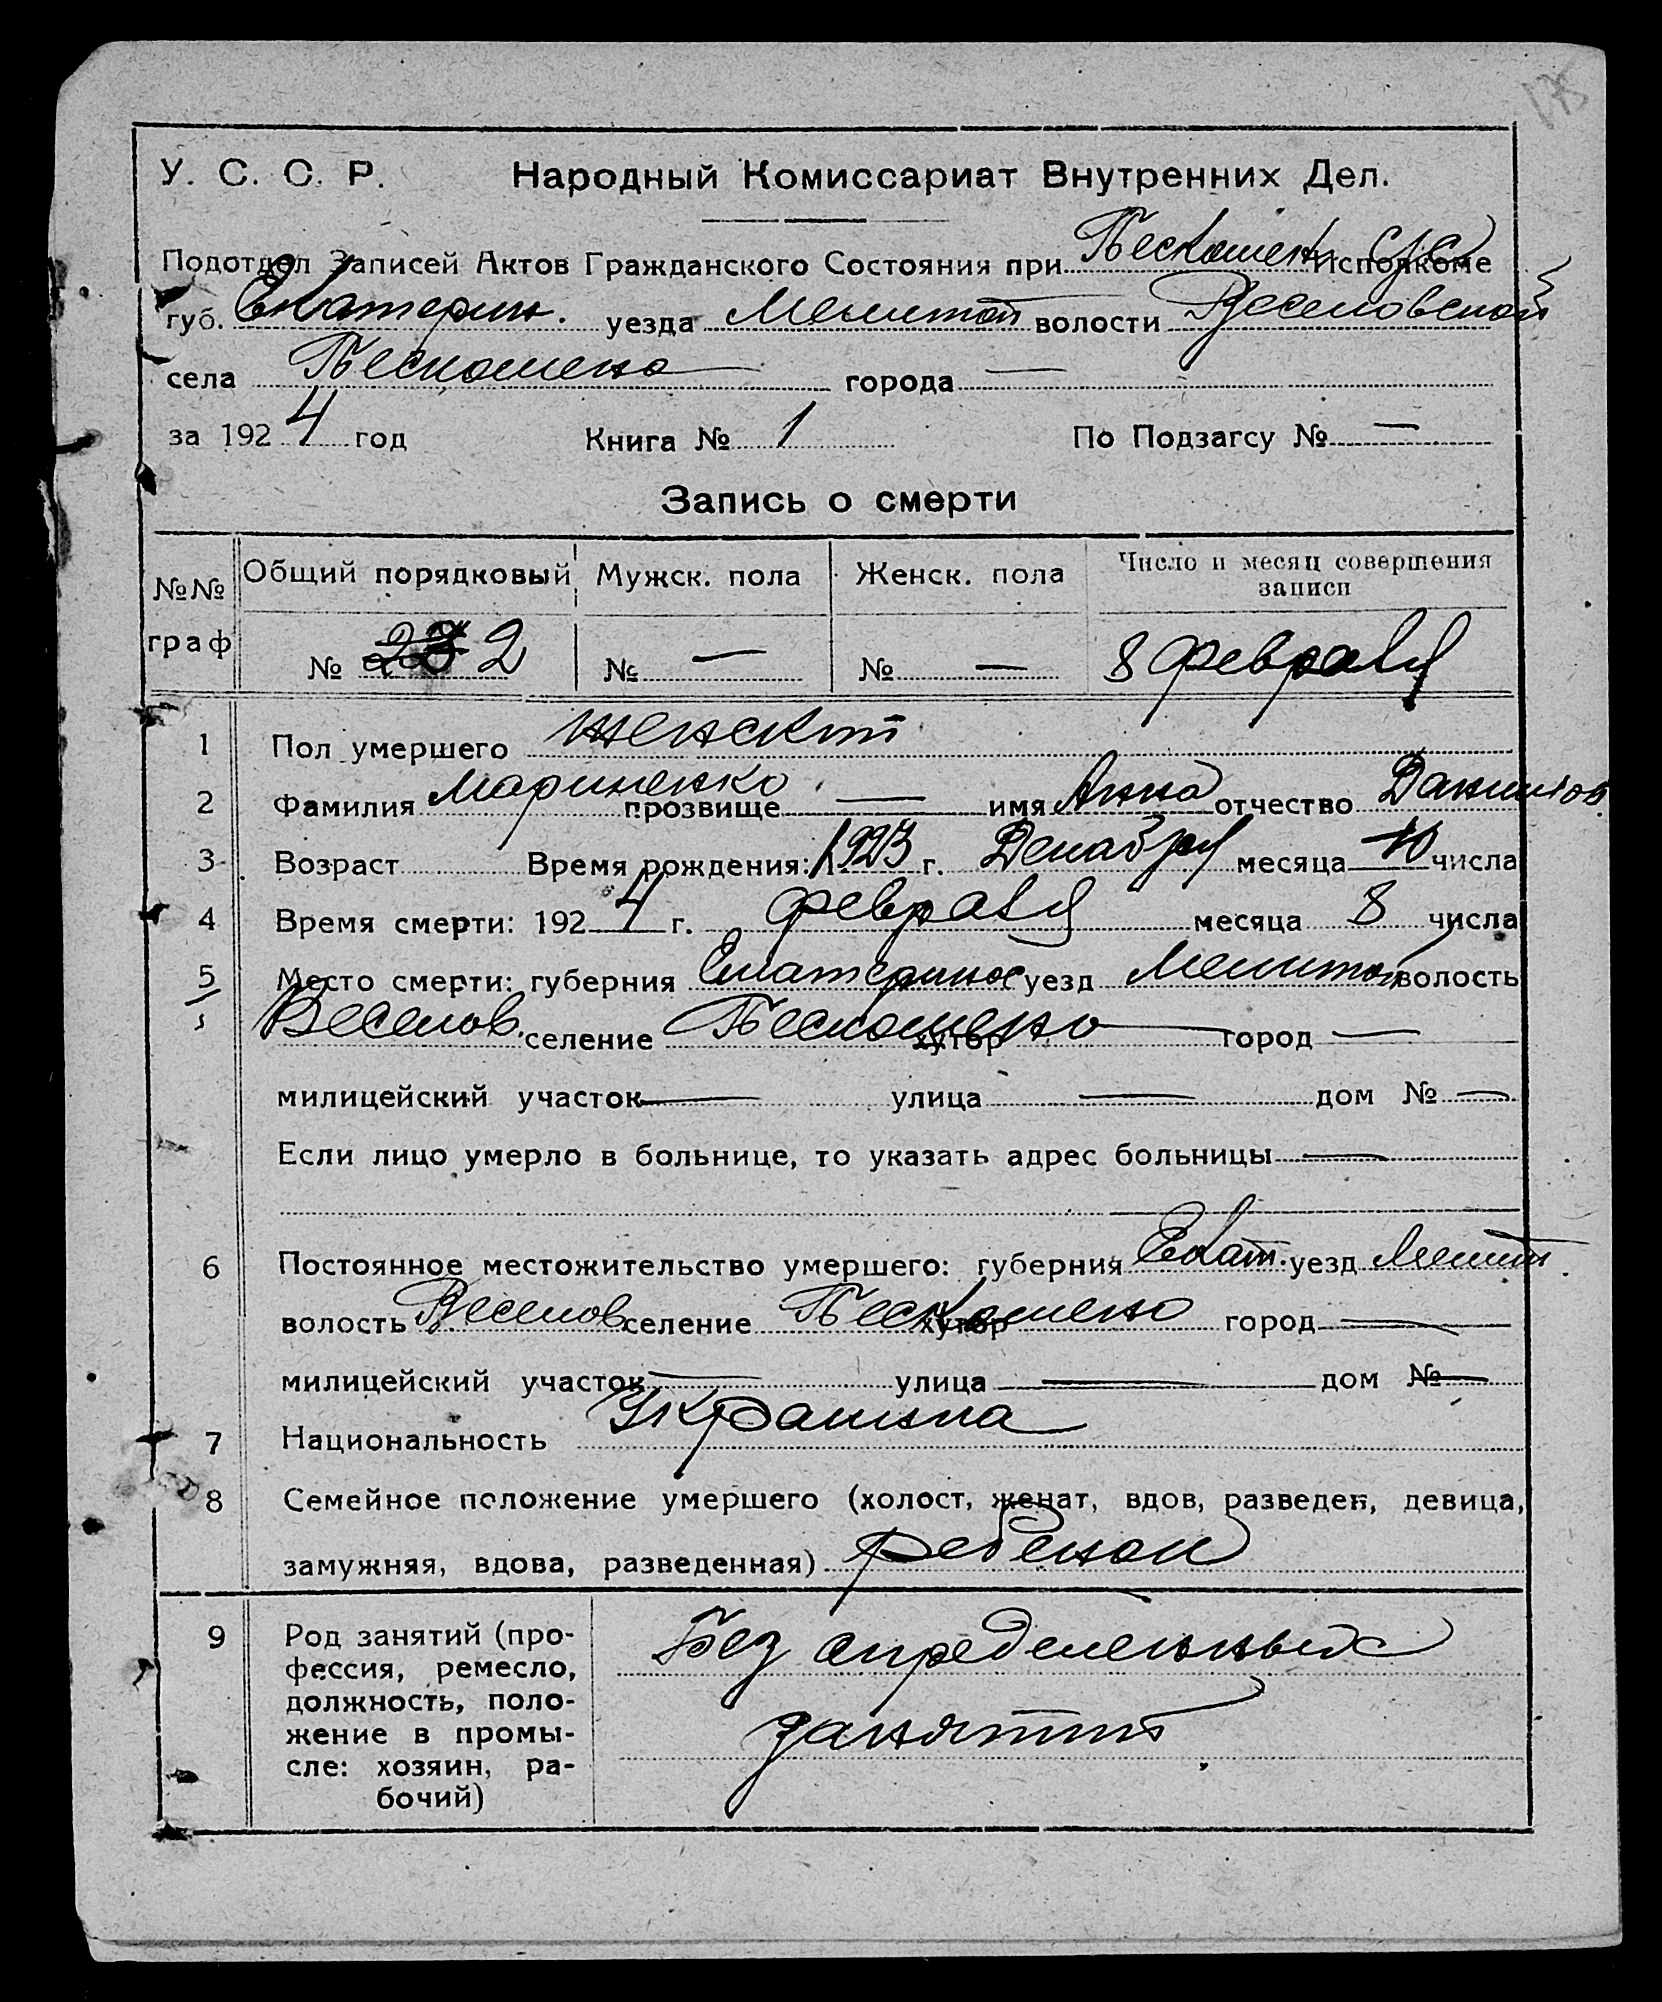 175
У. С. С. Р. Народный Комиссариат Внутренних Дел.
Подотдел Записей Актов Гражданского Состояния при Бескошен. Исполкоме
губ. Екатерин. уезда Мелитоп волости Веселовской
села Бескошено города —
за 1924 год Книга № 1 По Подзагсу № —
Запись о смерти
№№ граф Общий порядковый Мужск. пола Женск. пола Число и месяц совершения записи
№ 2 № — № — 8 февраля
1 Пол умершего женский
2 Фамилия Мариненко прозвище — имя Анна отчество Данилов
3 Возраст Время рождения: 1923 г. Декабря месяца 10 числа
4 Время смерти: 1924 г. февраля месяца 8 числа
5 Место смерти: губерния Екатеринос уезд Мелитоп волость
Веселов. селение Бескошено хутор город —
милицейский участок — улица — дом № —
Если лицо умерло в больнице, то указать адрес больницы —
6 Постоянное местожительство умершего: губерния Екат. уезд Мелит
волость Веселов селение Бескошено хутор город —
милицейский участок — улица — дом № —
7 Национальность Украинка
8 Семейное положение умершего (холост, женат, вдов, разведен, девица,
замужняя, вдова, разведенная) ребенок
9 Род занятий (про-
фессия, ремесло,
должность, поло-
жение в промы-
сле: хозяин, ра-
бочий)
Без определенных
занятий